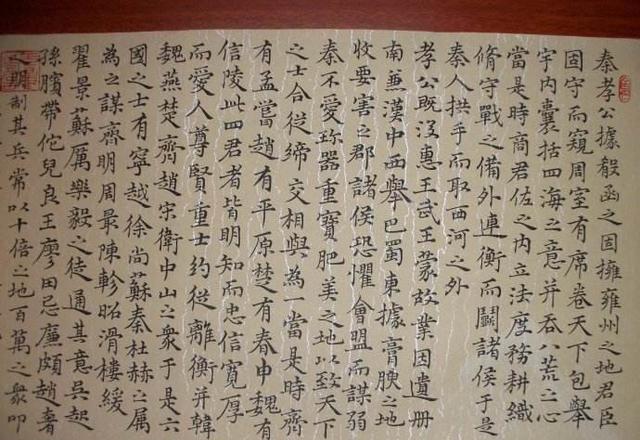 秦孝公據殽函之固擁雍州之地君臣
固守而窺周室有席卷天下包舉
宇内囊括四海之意并吞八荒之心
當是時商君佐之内立法度務耕織
脩守戰之備外連衡而鬬諸侯于是
秦人拱手而取西河之外
孝公既沒惠王武王蒙故業因遺册
南兼漢中西舉巴蜀東據膏腴之地
收要害之郡諸侯恐懼會盟而謀弱
秦不愛珍器重寶肥美之地以致天下
之士合從締交相與為一當是時齊
有孟嘗趙有平原楚有春申魏有
信陵此四君者皆明知而忠信寬厚
而愛人尊賢重士約從離衡并韓
魏燕楚齊趙宋衛中山之衆于是六
國之士有寧越徐尚蘇秦杜赫之属
為之謀齊明周最陳軫昭滑樓緩
翟景蘇厲樂毅之徒通其意吳起
孫臏帶佗兒良王廖田忌廉頗趙奢
之朋制其兵常以十倍之地百萬之衆叩